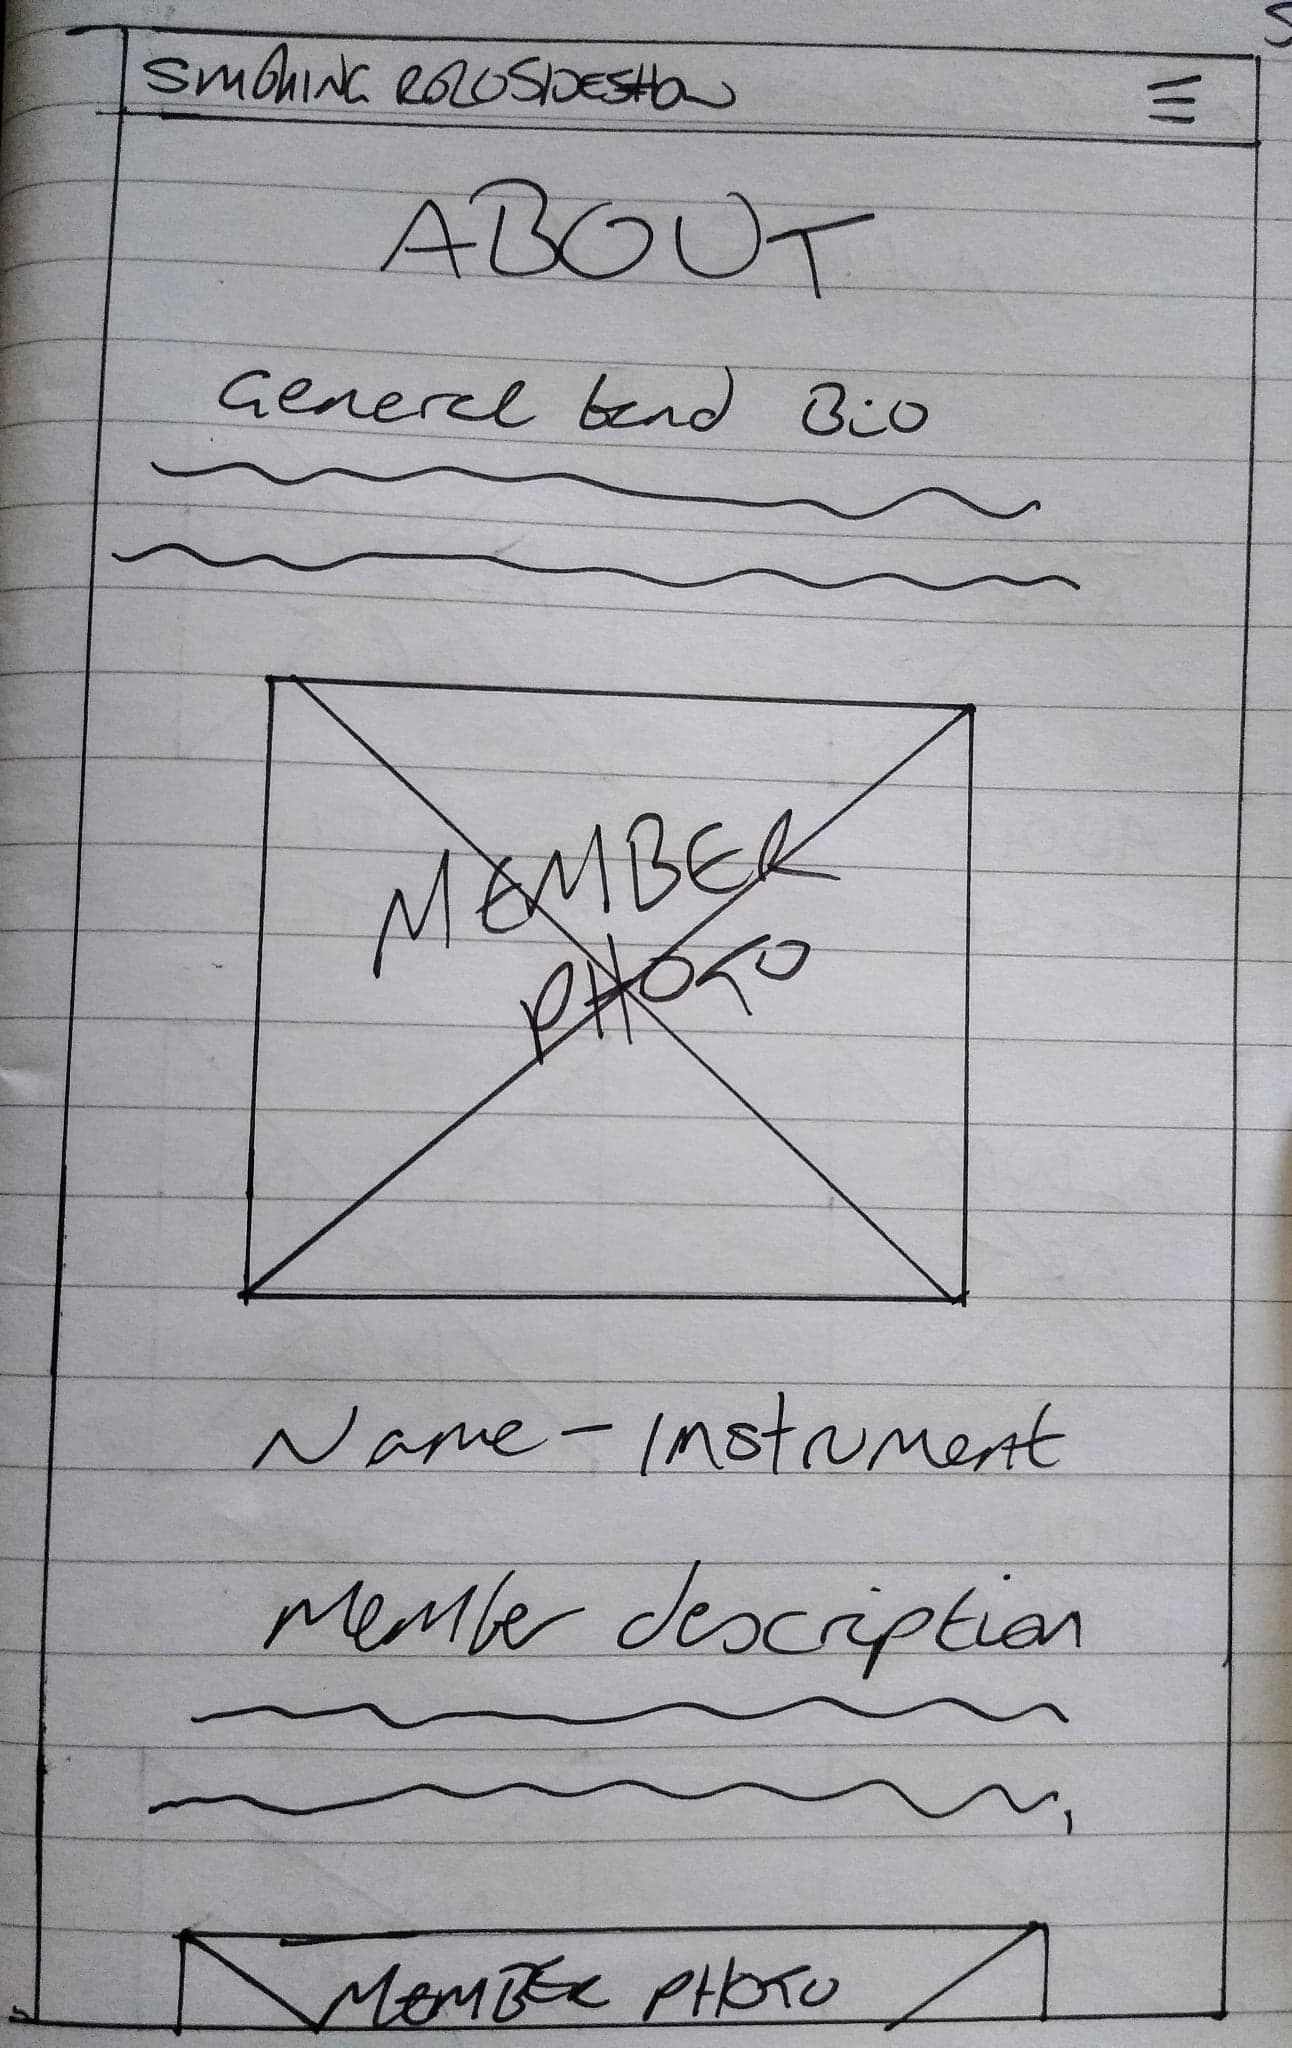 SMOKING ROLO SIDESHOW
ABOUT
General band Bio
MEMBER
PHOTO
Name - Instrument
Member description
MEMBER PHOTO